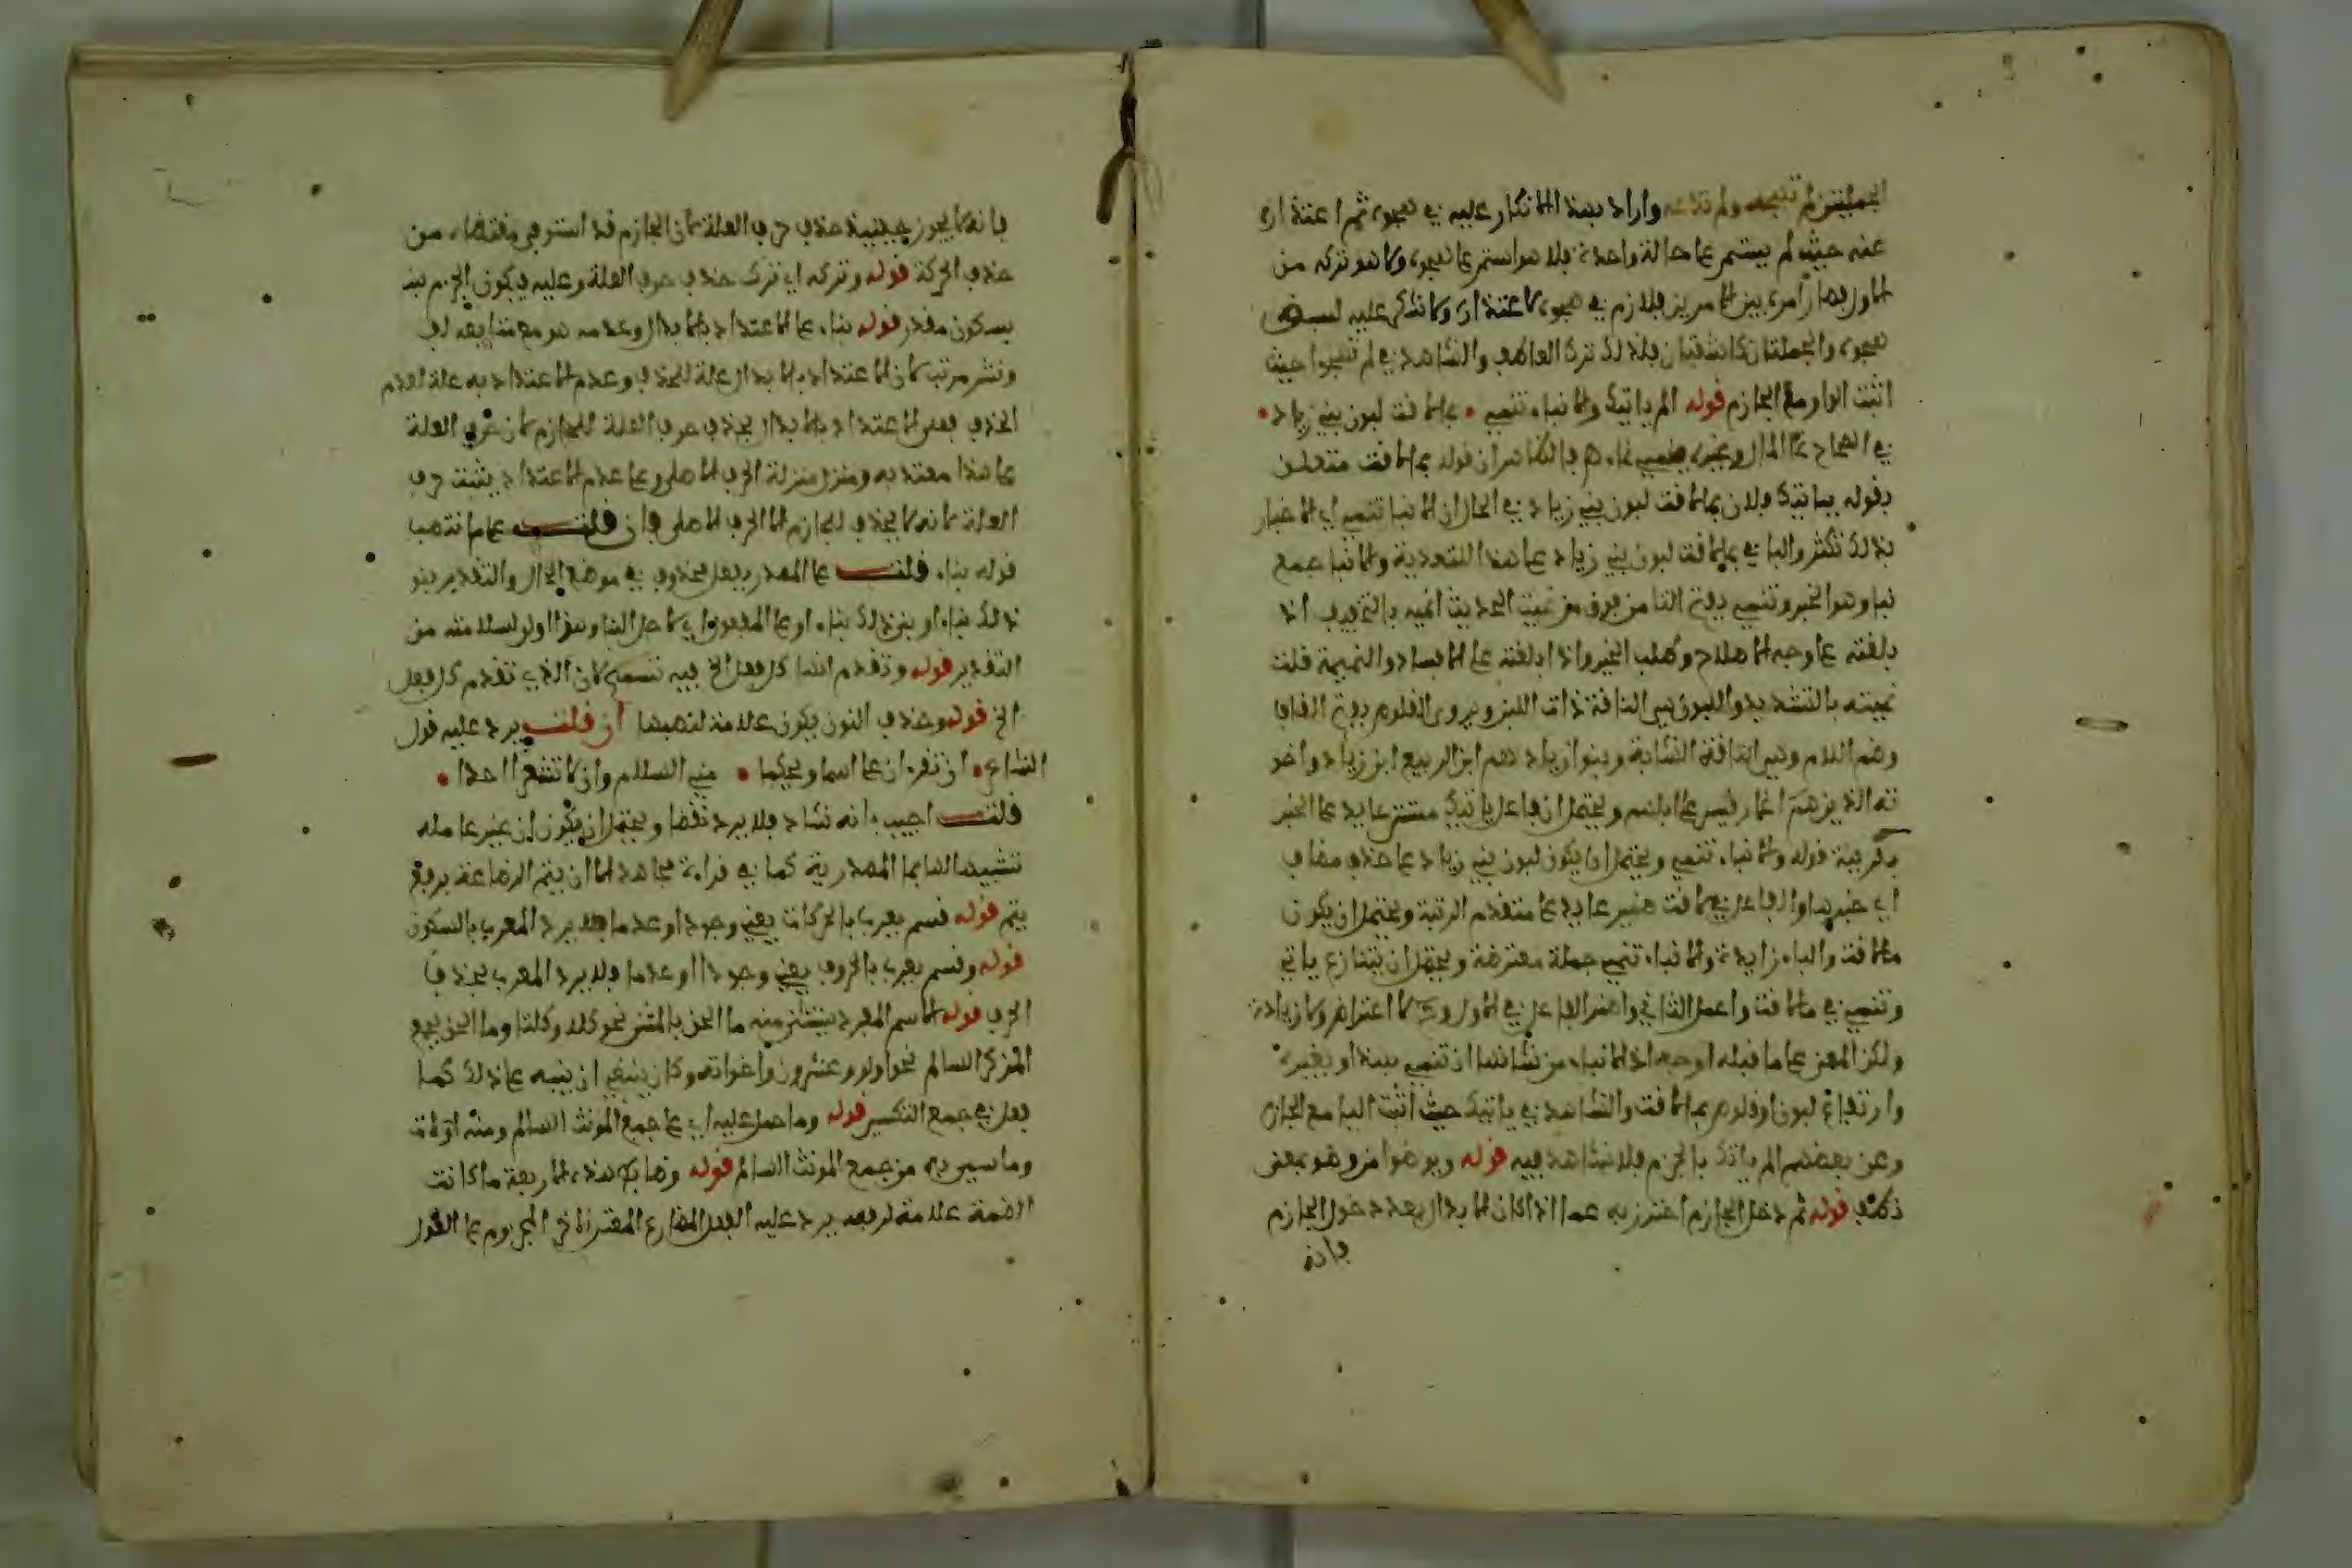 الجملتين لم تهجه ولم تدعه واراد بهذا الانكار عليه في هجوه ثم اعتذاره
عنه حيث لم يستمر على حالة واحدة فلا هو استمر على هجوه ولا هو تركه من
الاول فصار امره بين الامرين فلا زم في هجوه لاعتذاره ولا شكر عليه لسبق
هجوه والجملتان كاشفتان فلذلك ترك العاطف والشاهد في لم تهجوا حيث
اثبت الواو مع الجازم قوله الم ياتيك والانباء تنمي • بما لاقت لبون بني زياد •
في الصحاح نما المال وغيره ينمي نماء هـ فالظاهر ان قوله بما لاقت متعلق
بقوله ياتيك فلان بما لاقت لبون بني زياد في الحال ان الانبا تنمي اي الاخبار
بذلك تكثر والبا في بما لاقت لبون بني زياد على هذا للتعدية والانبا جمع
نبا وهو الخبر وتنمي بفتح التا من فوق من نميت الحديث انميه بالتخفيف اذا
بلغته على وجه الاصلاح وطلب الخير واذا بلغته على الافساد والنميمة قلت
نميته بالتشديد واللبون هي الناقة ذات اللبن ويروى القلوص بفتح القاف
وضم اللام وهي الناقة الشابة وبنوا زياد هم ابن الربيع ابن زياد واخو
ته الذين هم اغار قيس على ابلهم ويحتمل ان فاعل ياتيك مستتر عايد على الخبر
بقرينة قوله والانباء تنمي ويحتمل ان يكون لبون بني زياد على حذف مضاف
اي خبر لبون والفاعل في لاقت ضمير عايد على متقدم الرتبة ويحتمل ان يكون
ما لاقت والباء زايدة والانباء تنمي جملة معترضة ويحتمل ان يتنازع ياتي
وتنمي في ما لاقت واعمل الثاني واضمر الفاعل في الاول ولا اعتراض ولا زيادة
ولكن المعنى على ما قبله اوجه اذ الانباء من شانها ان تنمي بهذا او بغيره
وارتفاع لبون او قلوص بما لاقت والشاهد في ياتيك حيث اثبت اليا مع الجازم
وعن بعضهم الم ياتك بالجزم فلا شاهد فيه قوله ويوضوا من وضو بمعنى
نظف قوله ثم دخل الجازم احترز به عما اذا كان الابدال بعد دخول الجازم
فانه
فانه لا يجوز حينئذ حذف حرف العلة لان الجازم قد استوفى مقتضاه من
حذف الحركة قوله وتركه اي ترك حذف حرف العلة وعليه فيكون الجزم
بسكون مقدر قوله بناء على الاعتداد بالابدال وعدمه هو مع ما بعد لف
ونشر مرتب لان الاعتداد بالابدال علة للحذف وعدم الاعتداد به علة لعدم
الحذف فعلى الاعتداد بالابدال يحذف حرف العلة للجازم لان حرف العلة
على هذا معتد به ومنزل منزلة الحرف الاصلي وعلى عدم الاعتداد يثبت حرف
العلة لانه لا يحذف للجازم الا الحرف الاصلي فان قلت على ما انتصب
قوله بناء قلت على المصدر بفعل محذوف في موضع الحال والتقدير بنو
ذلك بناء او بني ذلك بناء او على المفعول اي لاجل البنا وهذا اولى لسلامته من
التقدير قوله وتقدم انها كل فعل الخ فيه تسمح لان الذي تقدم كل فعل
الخ قوله وحذف النون يكون علامة لنصبها ان قلت يرد عليه قول
الشاعر • ان تقرءان على اسما ويحكما • مني السلام وان لا تشعرا احدا •
قلت اجيب بانه شاذ فلا يرد نقضا ويحتمل ان يكون ان غير عاملة
تشبيها لها بما المصدرية كما في قراءة مجاهد لمن اراد ان يتم الرضاعة برفع
يتم قوله قسم يعرب بالحركات يعني وجودا وعدما فلا يرد المعرب بالسكون
قوله وقسم يعرب بالحروف يعني وجودا وعدما فلا يرد المعرب بحذف
الحرف قوله الاسم المفرد يستثنى منه ما الحق بالمثنى نحو كلا وكلتا وما الحق بجمع
المذكر السالم نحو اولو وعشرون واخواته وكان ينبغي ان ينبه على ذلك كما
فعل في جمع التكسير قوله وما حمل عليه اي على جمع المونث السالم ومنه اولات
وما سمي به من جمع المونث السالم قوله وضابط هذه الاربعة ما كانت
الضمة علامة لرفعه يرد عليه الفعل المضارع المعتل الاخر المجزوم على القول